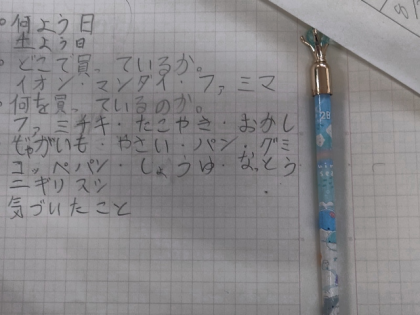 。何よう日
土よう日
。どこで買っているか。
イオン・マンダイ・ファミマ
。何を買っているのか。
ファミチキ・たこやき・おかし
じゃがいも・やさい・パン・グミ
コッペパン・しょうゆ・なっとう
ニギリスシ
気づいたこと